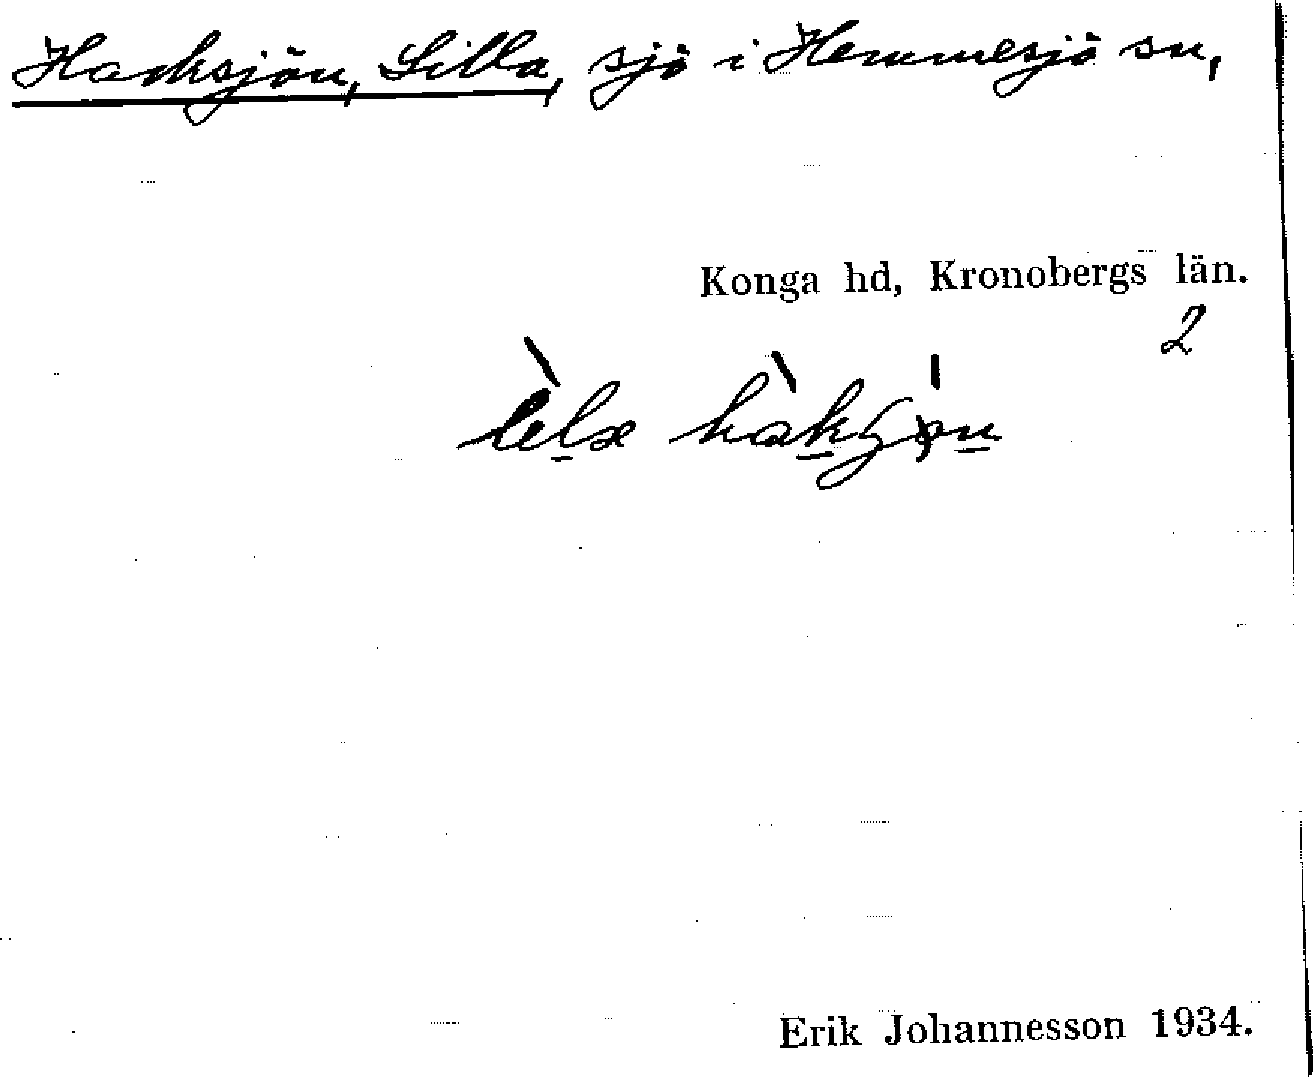 Hacksjön, Lilla, sjö i Hemmesjö sn,
Konga hd, Kronobergs län.
2
Erik Johannesson 1934.